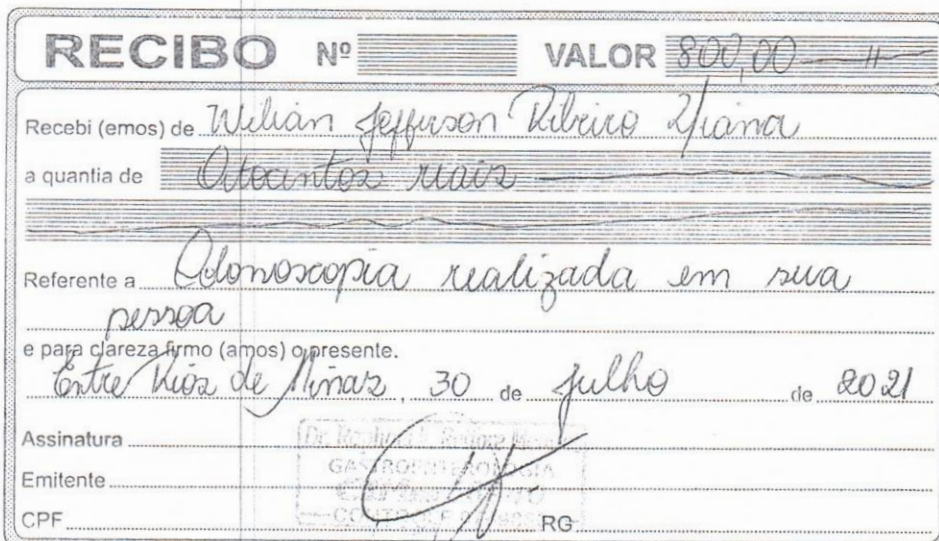 RECIBO Nº VALOR 800,00
Recebi (emos) de Wilian Jefferson Ribeiro Viana
a quantia de Oitocentos reais
Referente a Colonoscopia realizada em sua
pessoa
e para clareza firmo (amos) o presente.
Entre Rios de Minas, 30 de julho de 2021
Assinatura
Emitente
CPF RG
Dr.
GASTROENTEROLOGIA